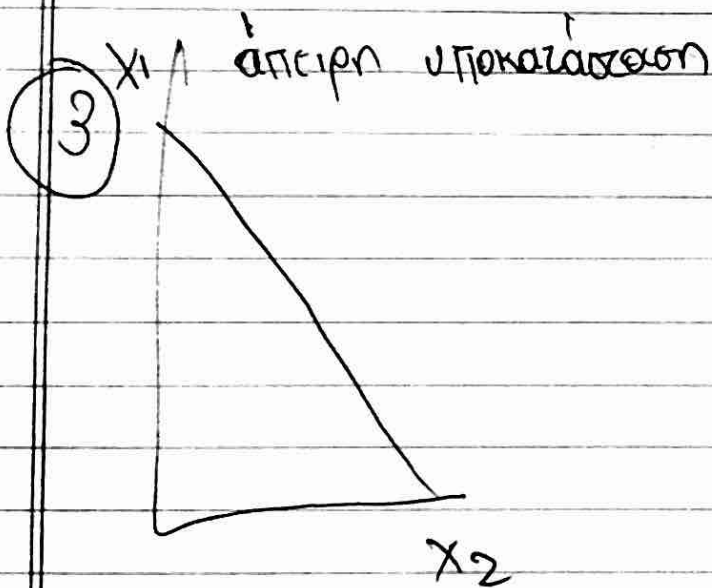 X1 άπειρη υποκατάσταση
3
X2